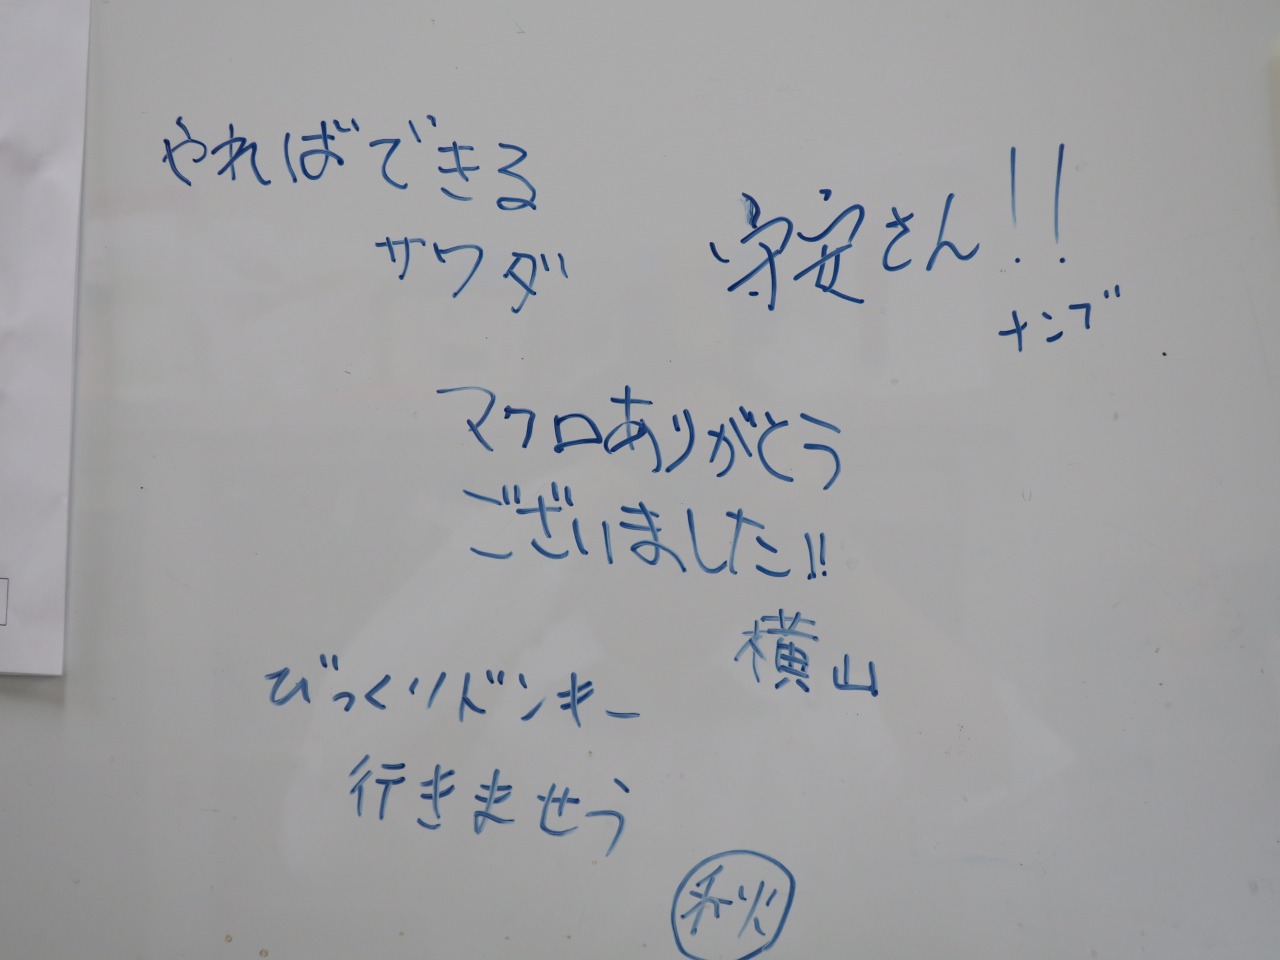 やればできる
サワダ
守安さん!!
ナンブ
マクロありがとう
ございました!!
横山
びっくりドンキー
行きませう
秋